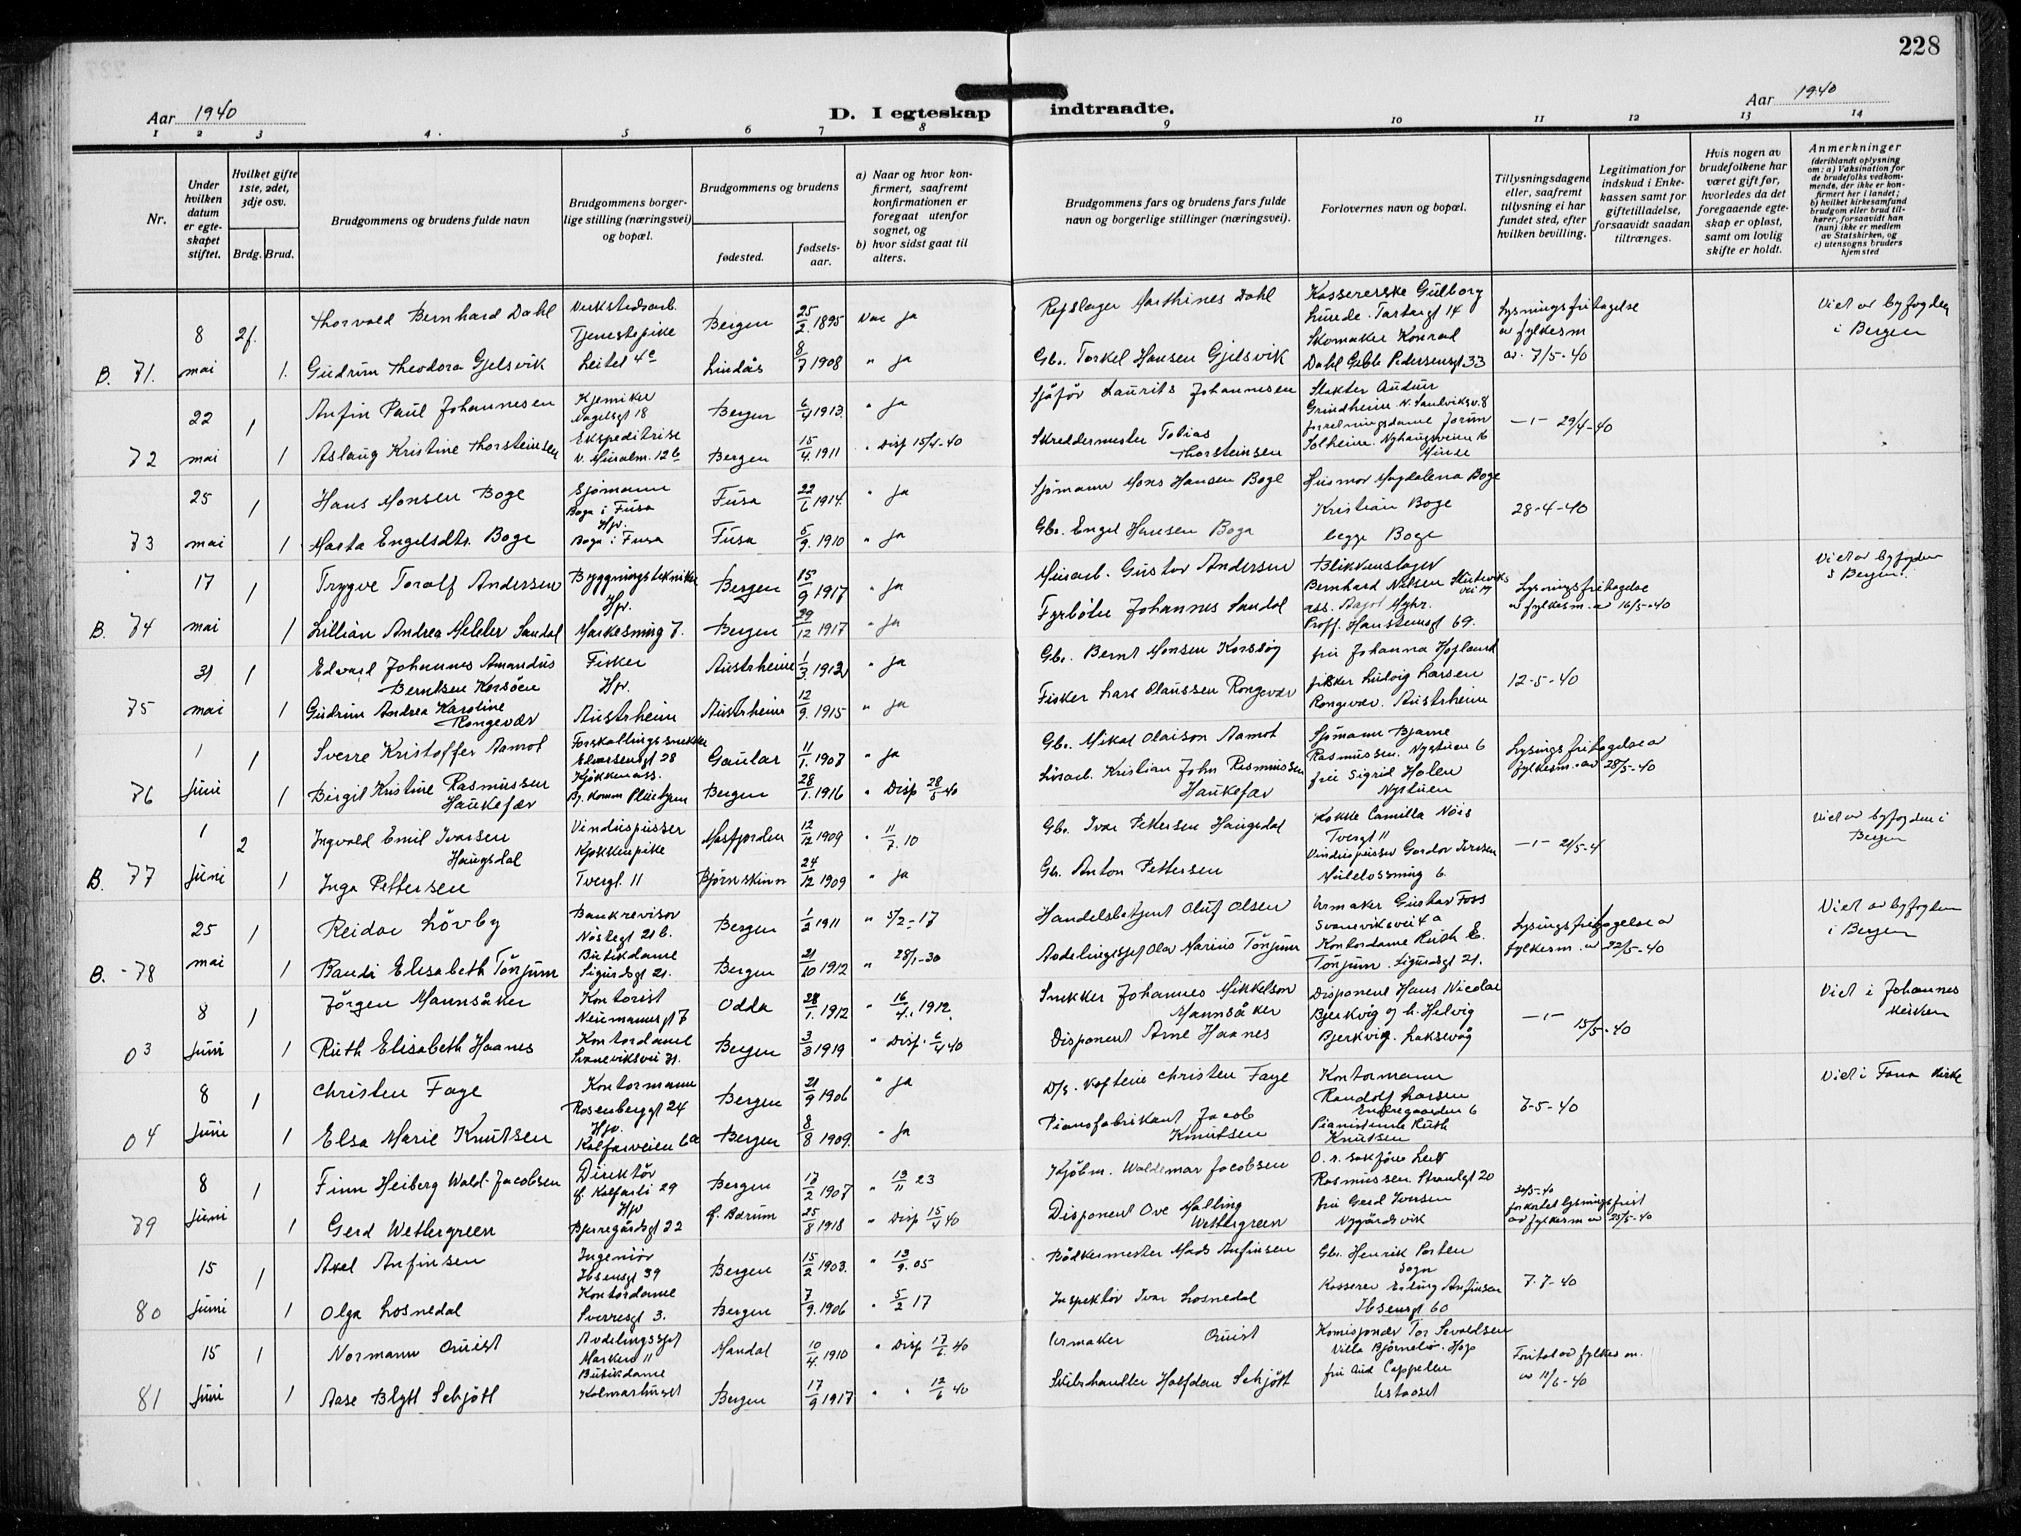 228
Aar 1940
D. I egteskap indtraadte.
Aar 1940
1 2 3 4. 5 6 7 8 9 10 11 12 13 14
Nr.
Under hvilken datum er egteskapet stiftet.
Hvilket gifte 1ste, 2det, 3dje osv.
Brdg. Brud.
Brudgommens og brudens fulde navn
Brudgommens borgerlige stilling (næringsvei) og bopæl.
Brudgommens og brudens
fødested.
fødselsaar.
a) Naar og hvor konfirmert, saafremt konfirmationen er foregaat utenfor sognet, og
b) hvor sidst gaat til alters.
Brudgommens fars og brudens fars fulde navn og borgerlige stillinger (næringsvei).
Forlovernes navn og bopæl.
Tillysningsdagene eller, saafremt tillysning ei har fundet sted, efter hvilken bevilling.
Legitimation for indskud i Enkekassen samt for giftetilladelse, forsaavidt saadan tiltrænges.
Hvis nogen av brudefolkene har været gift før, hvorledes da det foregaaende egteskap er opløst, samt om lovlig skifte er holdt.
Anmerkninger
(deriblandt oplysning om: a) Vaksination for de brudefolks vedkommende, der ikke er konfirmert her i landet; b) hvilket kirkesamfund brudgom eller brud tilhører, forsaavidt han (hun) ikke er medlem av Statskirken, og c) utensogns bruders hjemsted
B. 71. 8 mai 2f. 1.
Thorvald Bernhard Dahl
Verkstedsarb.
Bergen 25/2. 1895 Nei ja
Repslager Marthines Dahl
Kassererske Gulborg
Lunde. Tartargt 14
Lysningsfritagelse
av fylkesm
av. 7/5-40
Viet av byfogden
i Bergen
Gudrun Theodora Gjelsvik
Tjenestepike
Leitet 4c
Lindås 8/7 1908 " ja
Gb. Torkel Hansen Gjelsvik
Skomaker Konrad
Dahl Gible Pedersensgt 33
72 22 mai 1 1
Anfin Paul Johannesen
Kjemiker
Nagelsgt 18
Bergen 6/4 1913. " ja
Sjåfør Laurits Johannesen
Grindheim
—ı— 29/4-40
Aslaug Kristine Thorsteinsen
Ekspeditrise
Bergen 15/4. 1911 " Disp 15/4-40
Skreddermester Tobias
Thorsteinsen
Solheim. Nyhaugsveien 16
Minde
73 25 mai 1 1
Hans Monsen Boge
Sjømann
Boge i Fusa
Fusa 22/6 1914. " ja
Sjømann Mons Hansen Boge
Husmor Magdalena Boge
Kristian Boge
28-4-40
Marta Engelsdtr. Boge
Hpr.
Boge i Fusa
Fusa 5/9. 1910 " ja
Gb. Engel Hansen Boge
begge Boge
B. 74 17 mai 1 1
Trygve Toralf Andersen
Byggningstekniker
Bergen 15/9 1917 " ja
Gustav Andersen
Blikkenslager
Bernhard Nilsen
Lysningsfritagelse
av fylkesm. av 16/5-40
Viet av byfogden
i Bergen.
Lillian Andrea Meleler Sandal
Hpr.
Markesmug 7.
Bergen 29/12 1917 " ja
Fyrbøter Johannes Sandal
Proff. Hansteensgt 69.
75 31 mai 1 1
Edvard Johannes Amandus
Berntsen Korsöen
Fisker
Austrheim 1/3. 1912 " ja
Gb. Bernt Monsen Korsöy
fru Johanna Hopland
12-5-40
Gudrun Andrea Karoline
Rongevær
Hpr.
Austrheim
Austrheim 12/9. 1915 " ja
Fisker Lars Olaussen Rongevær
fisker Ludvig Larsen
Rongevær. Austrheim
76 1 Juni 1 1
Sverre Kristoffer Aamot
Forskallingssnekker
Gaular 11/1. 1907 " ja
Gb. Mikal Olaison Aamot
Sjømann Bjarne
Rasmussen. Nystuen 6
Lysingsfritagelse av
fylkesm. av 28/5-40
Birgit Kristine Rasmussen
Haukefær
Kjøkkenass.
Bergen 28/1. 1916 " Disp 28/5 40
Kristian John Rasmussen
Haukefær
fru Sigrid Holen
Nystuen
B. 77 1 Juni 2 1
Ingvald Emil Ivarsen
Haugsdal
Vinduspusser
Masfjorden 12/12 1909 " 11/7. 10
Gb. Ivar Pettersen Haugsdal
Kokke Camilla Nöis
Tvergt 11
—ı— 21/5-4
Viet av byfogden i
Bergen
Inga Pettersen
Kjøkkenpike
Tvergt. 11
Bjørnskinn 24/12 1909 " ja
Gb. Anton Pettersen
Vinduspusser
B. -78 25 mai 1 1
Reidar Lövby
Bankrevisor
Nöstegt 21 b.
Bergen 1/2 1911 " 5/2-17
Handelsbetjent Oluf Olsen
Urmaker Gustav Foss
Svaneviksvei 4a
Lysingsfritagelse av
fylkesm. av 22/5-40
Viet av byfogden
i Bergen
Randi Elisabeth Tönjum
Butikdame
Sigurdsgt 21.
Bergen 21/10 1912 " 28/1-30
Avdelingssjef Olav Marius Tönjum
Kontordame Ruth E.
Tönjum. Sigurdsgt 21.
03 8 Juni 1 1
Jörgen Mannsåker
Kontorist
Neumannsgt 7
Odda 28/1. 1912 " 16/4. 1912.
Snekker Johannes Mikkelson
Mannsåker
Disponent Hans Nicolai
Bjerkvig og h. Helvig
—ı— 15/5-40
Viet i Johannes
kirken
Ruth Elisabeth Haanes
Kontordame
Svaneviksvei 31.
Bergen 3/3 1919 " Disp. 6/4 40
Disponent Arne Haanes
Bjerkvig. Laksevåg
04 8 Juni 1 1
Christen Faye
Kontormann
Rosenberggt 24
Bergen 21/9 1906 " ja
Christen Faye
Kontormann
Randolf Larsen
7-5-40
Viet i Fana Kirke
Elsa Marie Knutsen
Hpr.
Kalfarveien 6a
Bergen 8/8 1909. " ja
Pianofabrikant Jacob
Knutsen
Pianistinne Ruth
Knutsen
79 8 Juni 1 1
Finn Heiberg Wald. Jacobsen
Direktör
Kalfarli 29
Bergen 17/2 1907 " 13/11 23
Kjöbm. Waldemar Jacobsen
O. r. sakförer Leif
Rasmussen Strandgt 20
30/5-40
forkortet lysningsfrist
av fylkesm av 25/5-40
Gerd Wettergreen
Hpr
Bjerregårdsgt 22
f. Bærum 25/8 1918 " Disp 15/4 40
Disponent Ove Malling
Wettergreen
fru Gerd Iversen
Nygårdsvik
80 15 Juni 1 1
Axel Anfinsen
Ingeniör
Ibsensgt 39
Bergen 15/2 1903. " 13/9. 05
Bödkermester Mads Anfinsen
Gb. Henrik Porten
Sogn
7-7-40
Olga Losnedal
Kontordame
Sverresgt 3.
Bergen 7/9. 1906 " 5/2 17
Inspektör Ivar Losnedal
Kasserer Erling Anfinsen
Ibsensgt 60
81 15 Juni 1 1
Normann Quist
Avdelingssjef
Marken 11
Mandal 10/4. 1910 " Disp 17/6. 40
Urmaker Quist
Tor Sevaldsen
Villa Hop
Fritat av fylkesm.
av 11/6-40
Aase Blytt Schjött
Butikdame
Kalmarhuset
Bergen 17/9 1917 " " 12/6 40
Halfdan Schjött
fru Aud Cappelen
Ustaoset